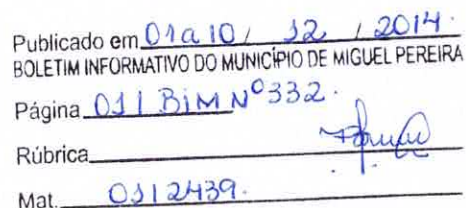 Publicado em 01 a 10 / 12 / 2014.
BOLETIM INFORMATIVO DO MUNICÍPIO DE MIGUEL PEREIRA
Página 01 | BIM Nº 332.
Rúbrica
Mat. 01/2439.